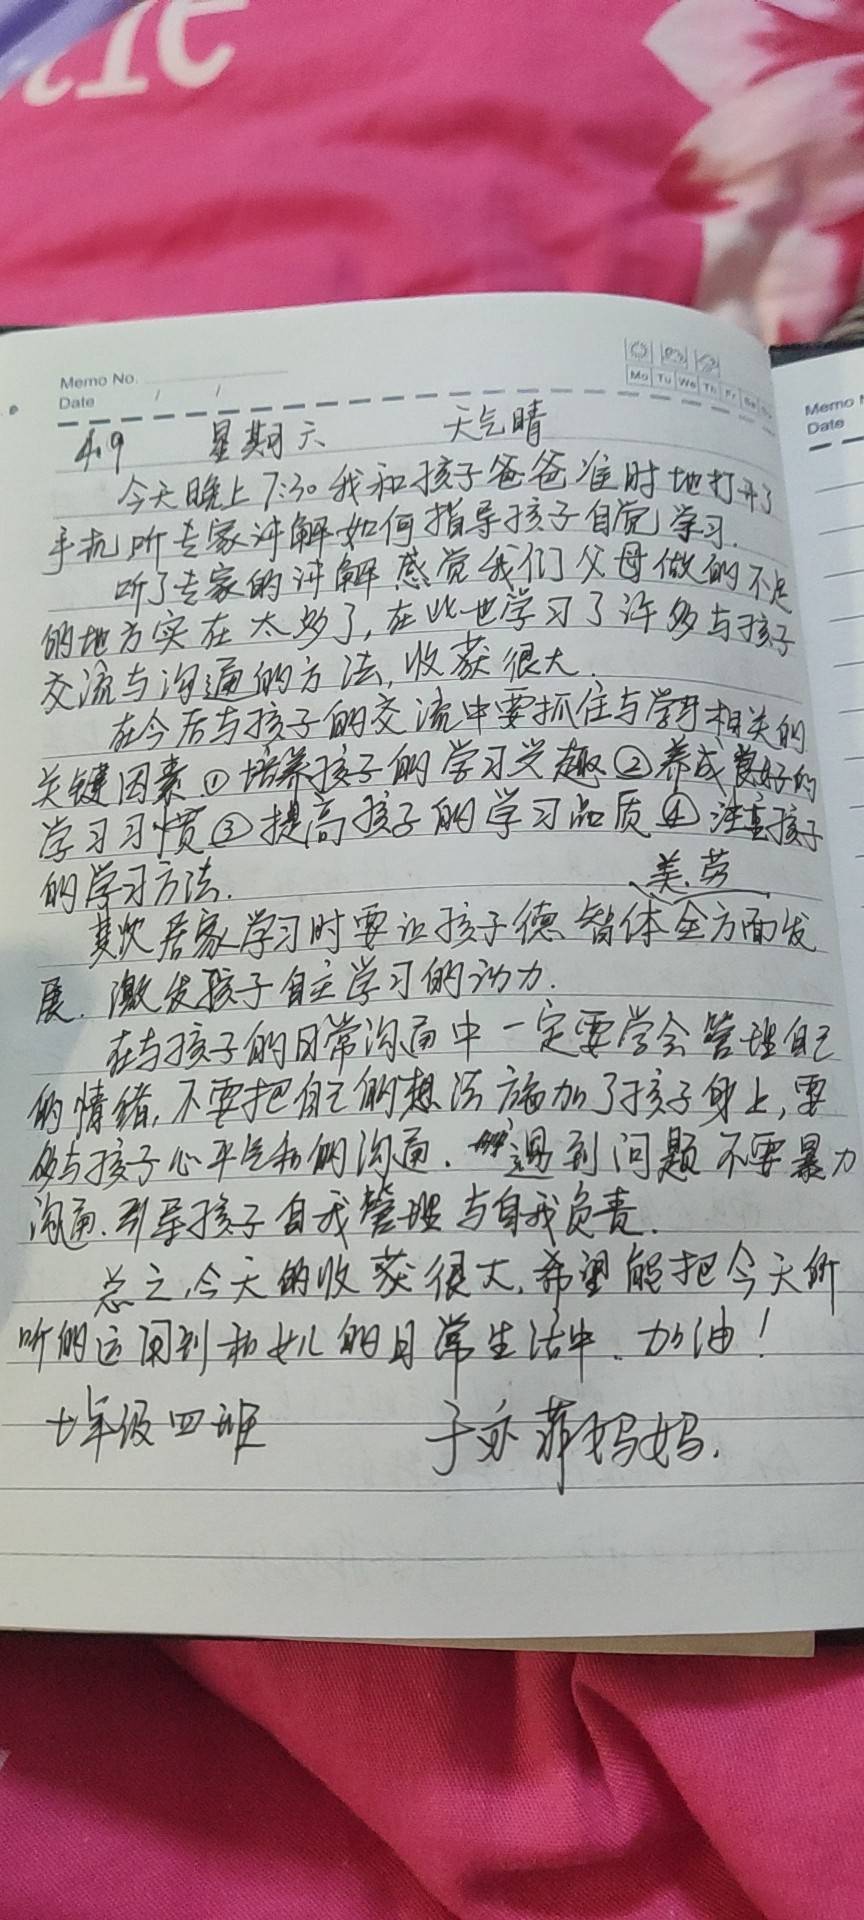 Memo No.
Date / /
Mo Tu We Th Fr Sa Su
Memo
Date
4.9 星期六 天气晴
今天晚上7:30我和孩子爸爸准时地打开了
手机听专家讲解如何指导孩子自觉学习.
听了专家的讲解感觉我们父母做的不足
的地方实在太多了,在此也学习了许多与孩子
交流与沟通的方法,收获很大.
在今后与孩子的交流中要抓住与学习相关的
关键因素①培养孩子的学习兴趣②养成良好的
学习习惯③提高孩子的学习品质④注重孩子
的学习方法.
美.劳
其次居家学习时要让孩子德智体全方面发
展.激发孩子自主学习的动力.
在与孩子的日常沟通中一定要学会管理自己
的情绪,不要把自己的想法施加了孩子身上,要
多与孩子心平气和的沟通.遇到问题不要暴力
沟通.引导孩子自我管理与自我负责.
总之,今天的收获很大.希望能把今天所
听的运用到和女儿的日常生活中.加油!
七年级四班 于亦菲妈妈.